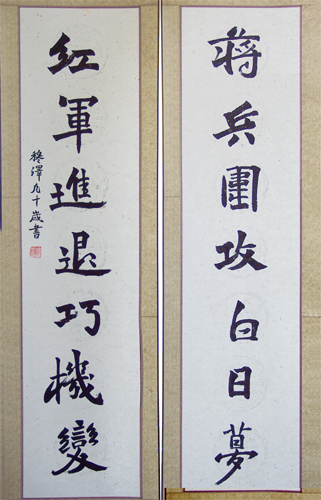 蔣兵團攻白日夢
紅軍進退巧機變
穆澤九十歲書